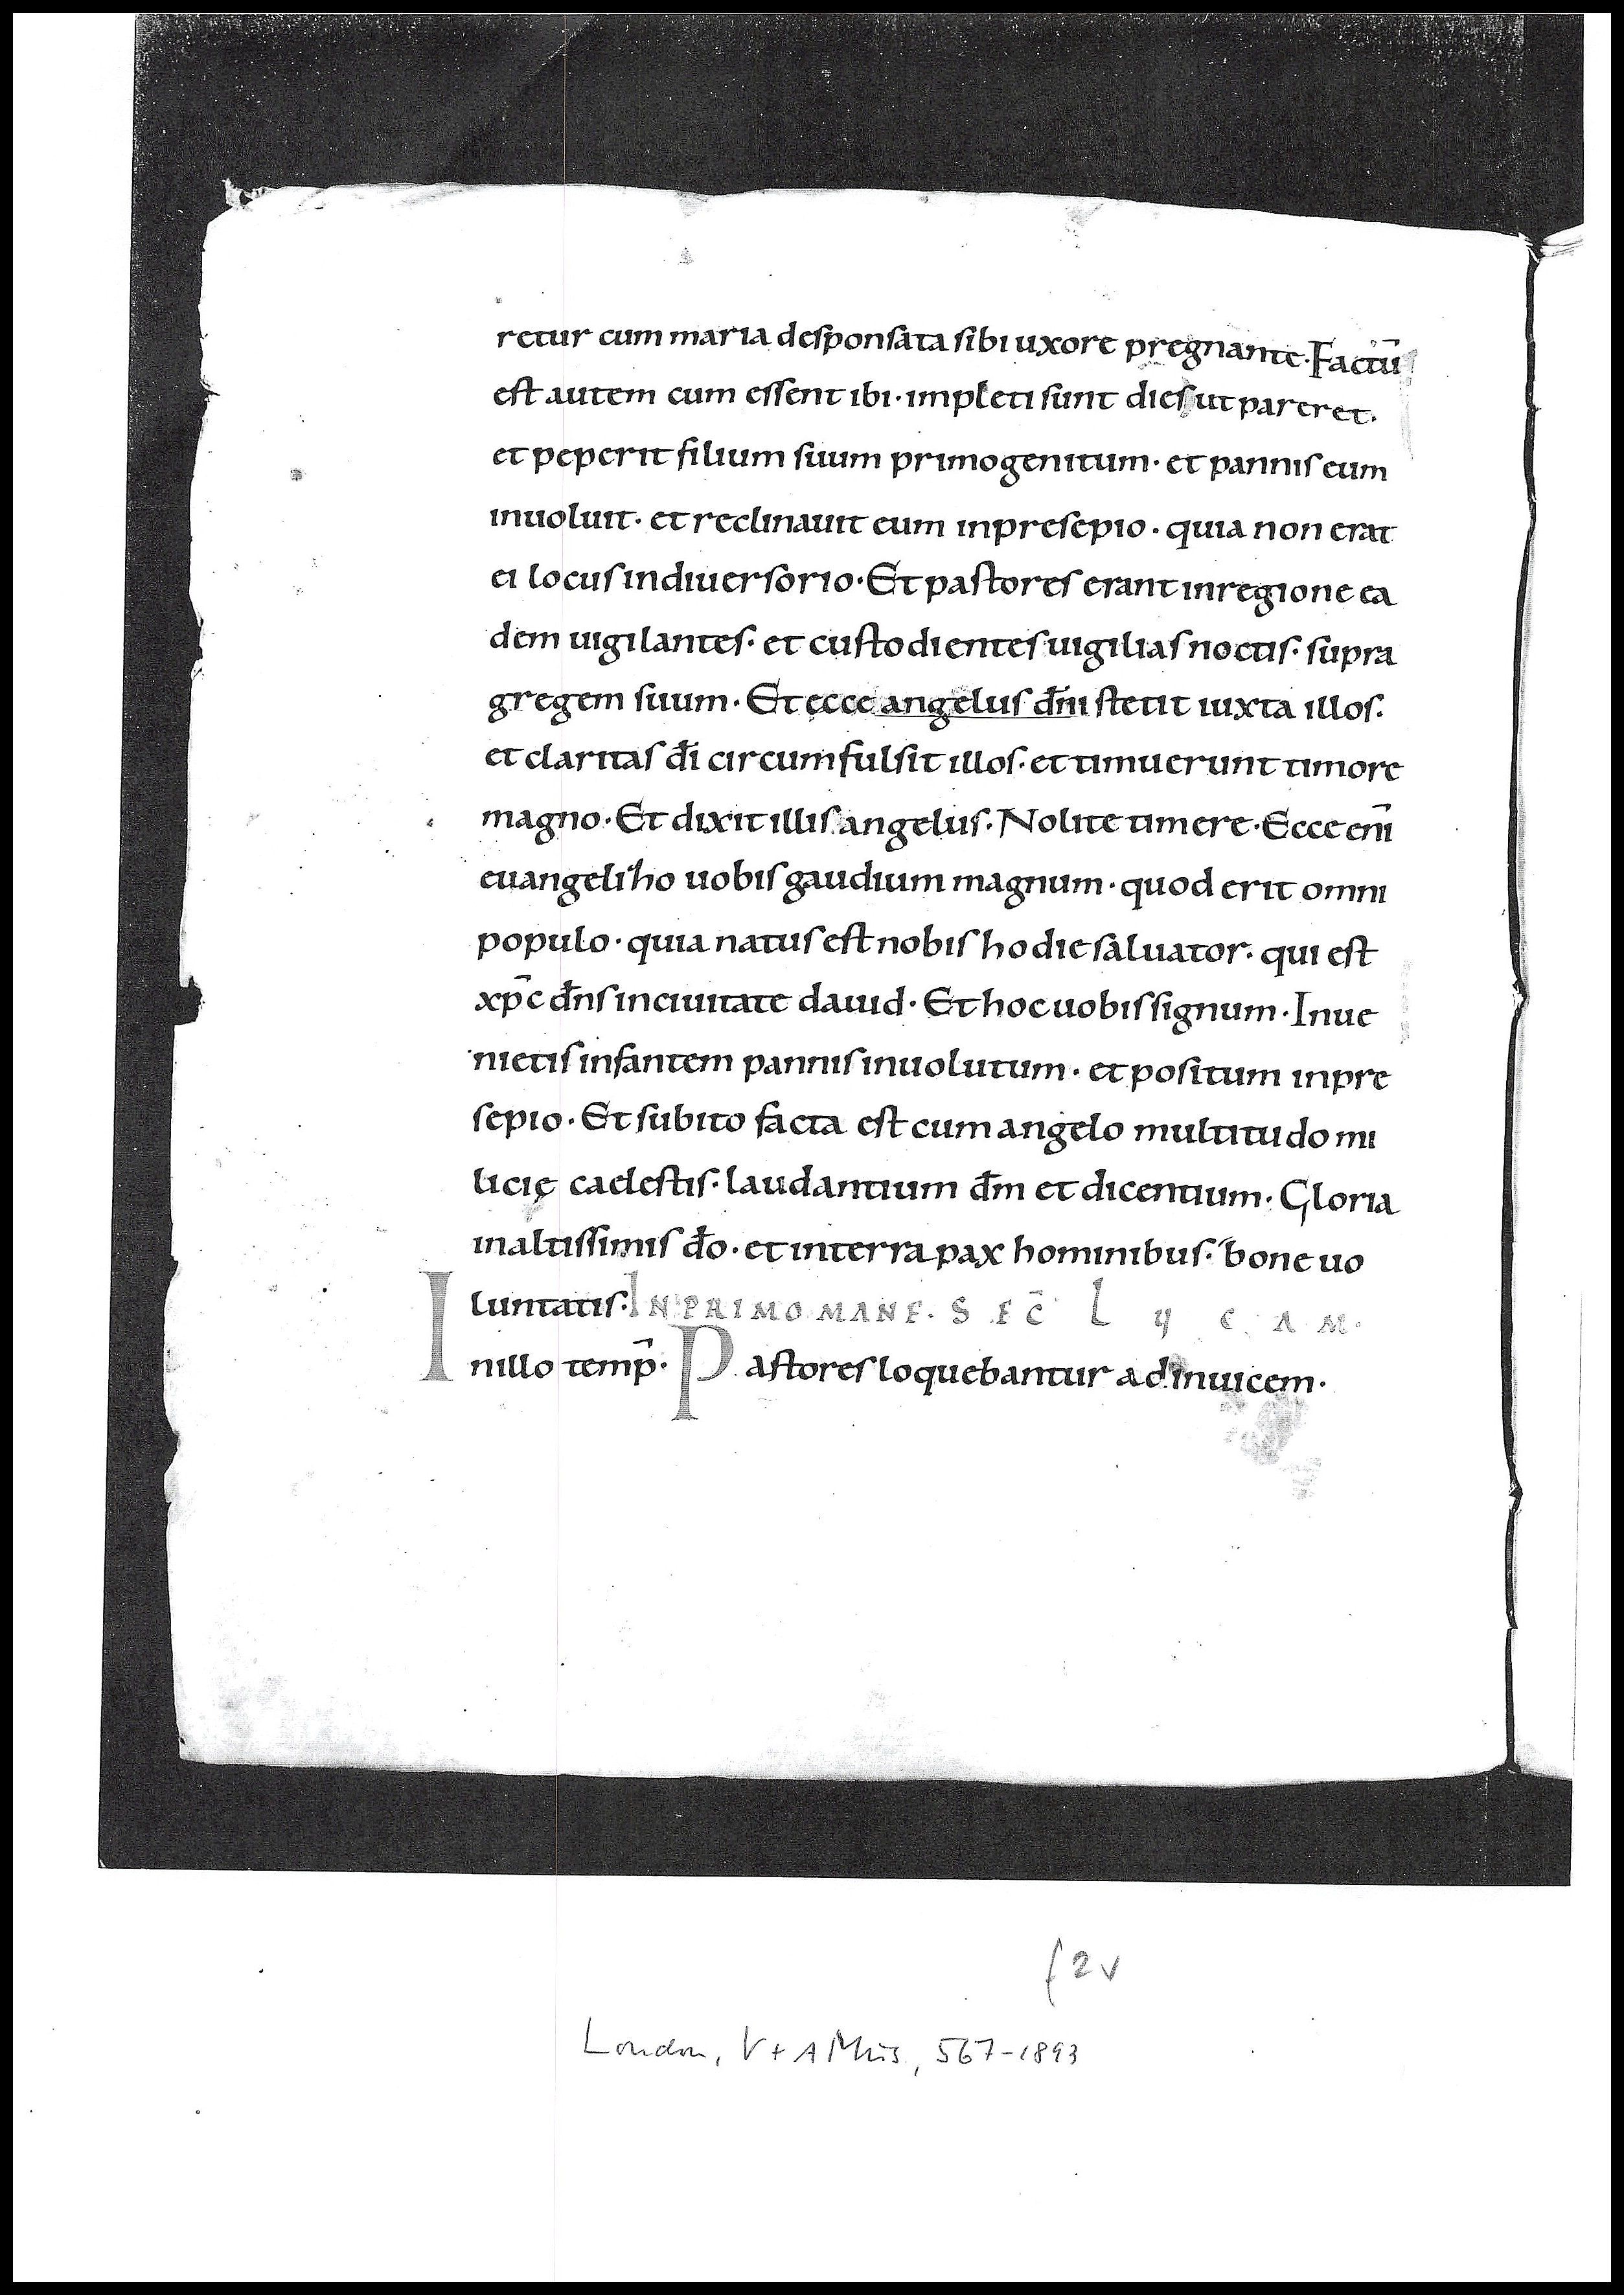 retur cum maria desponsata sibi uxore pregnante·Factū
est autem cum essent ibi·impleti sunt dies ut pareret.
et peperit filium suum primogenitum· et pannis eum
inuoluit· et reclinauit eum inpresepio· quia non erat
ei locus indiuersorio·Et pastores erant inregione ea
dem uigilantes· et custodientes uigilias noctis· supra
gregem suum· Et ecce angelus dn̄i stetit iuxta illos.
et claritas dī circumfulsit illos· et timuerunt timore
magno· Et dixit illis angelus· Nolite timere·Ecce enī
euangeliho uobis gaudium magnum· quod erit omni
populo· quia natus est nobis hodie saluator· qui est
xp̄c dn̄s inciuitate dauid· Et hoc uobis signum·Inue
nietis infantem pannis inuolutum· et positum inpre
sepio· Et subito facta est cum angelo multitudo mi
licię caelestis· laudantium dm̄ et dicentium· Gloria
inaltissimis dō· et interra pax hominibus· bone uo
luntatis· IN PRIMO MANE. SEC̄ LUCAM·
Inillo temp̄· Pastores loquebantur adinuicem·
f 2v
London, V+A Mus, 567-1893